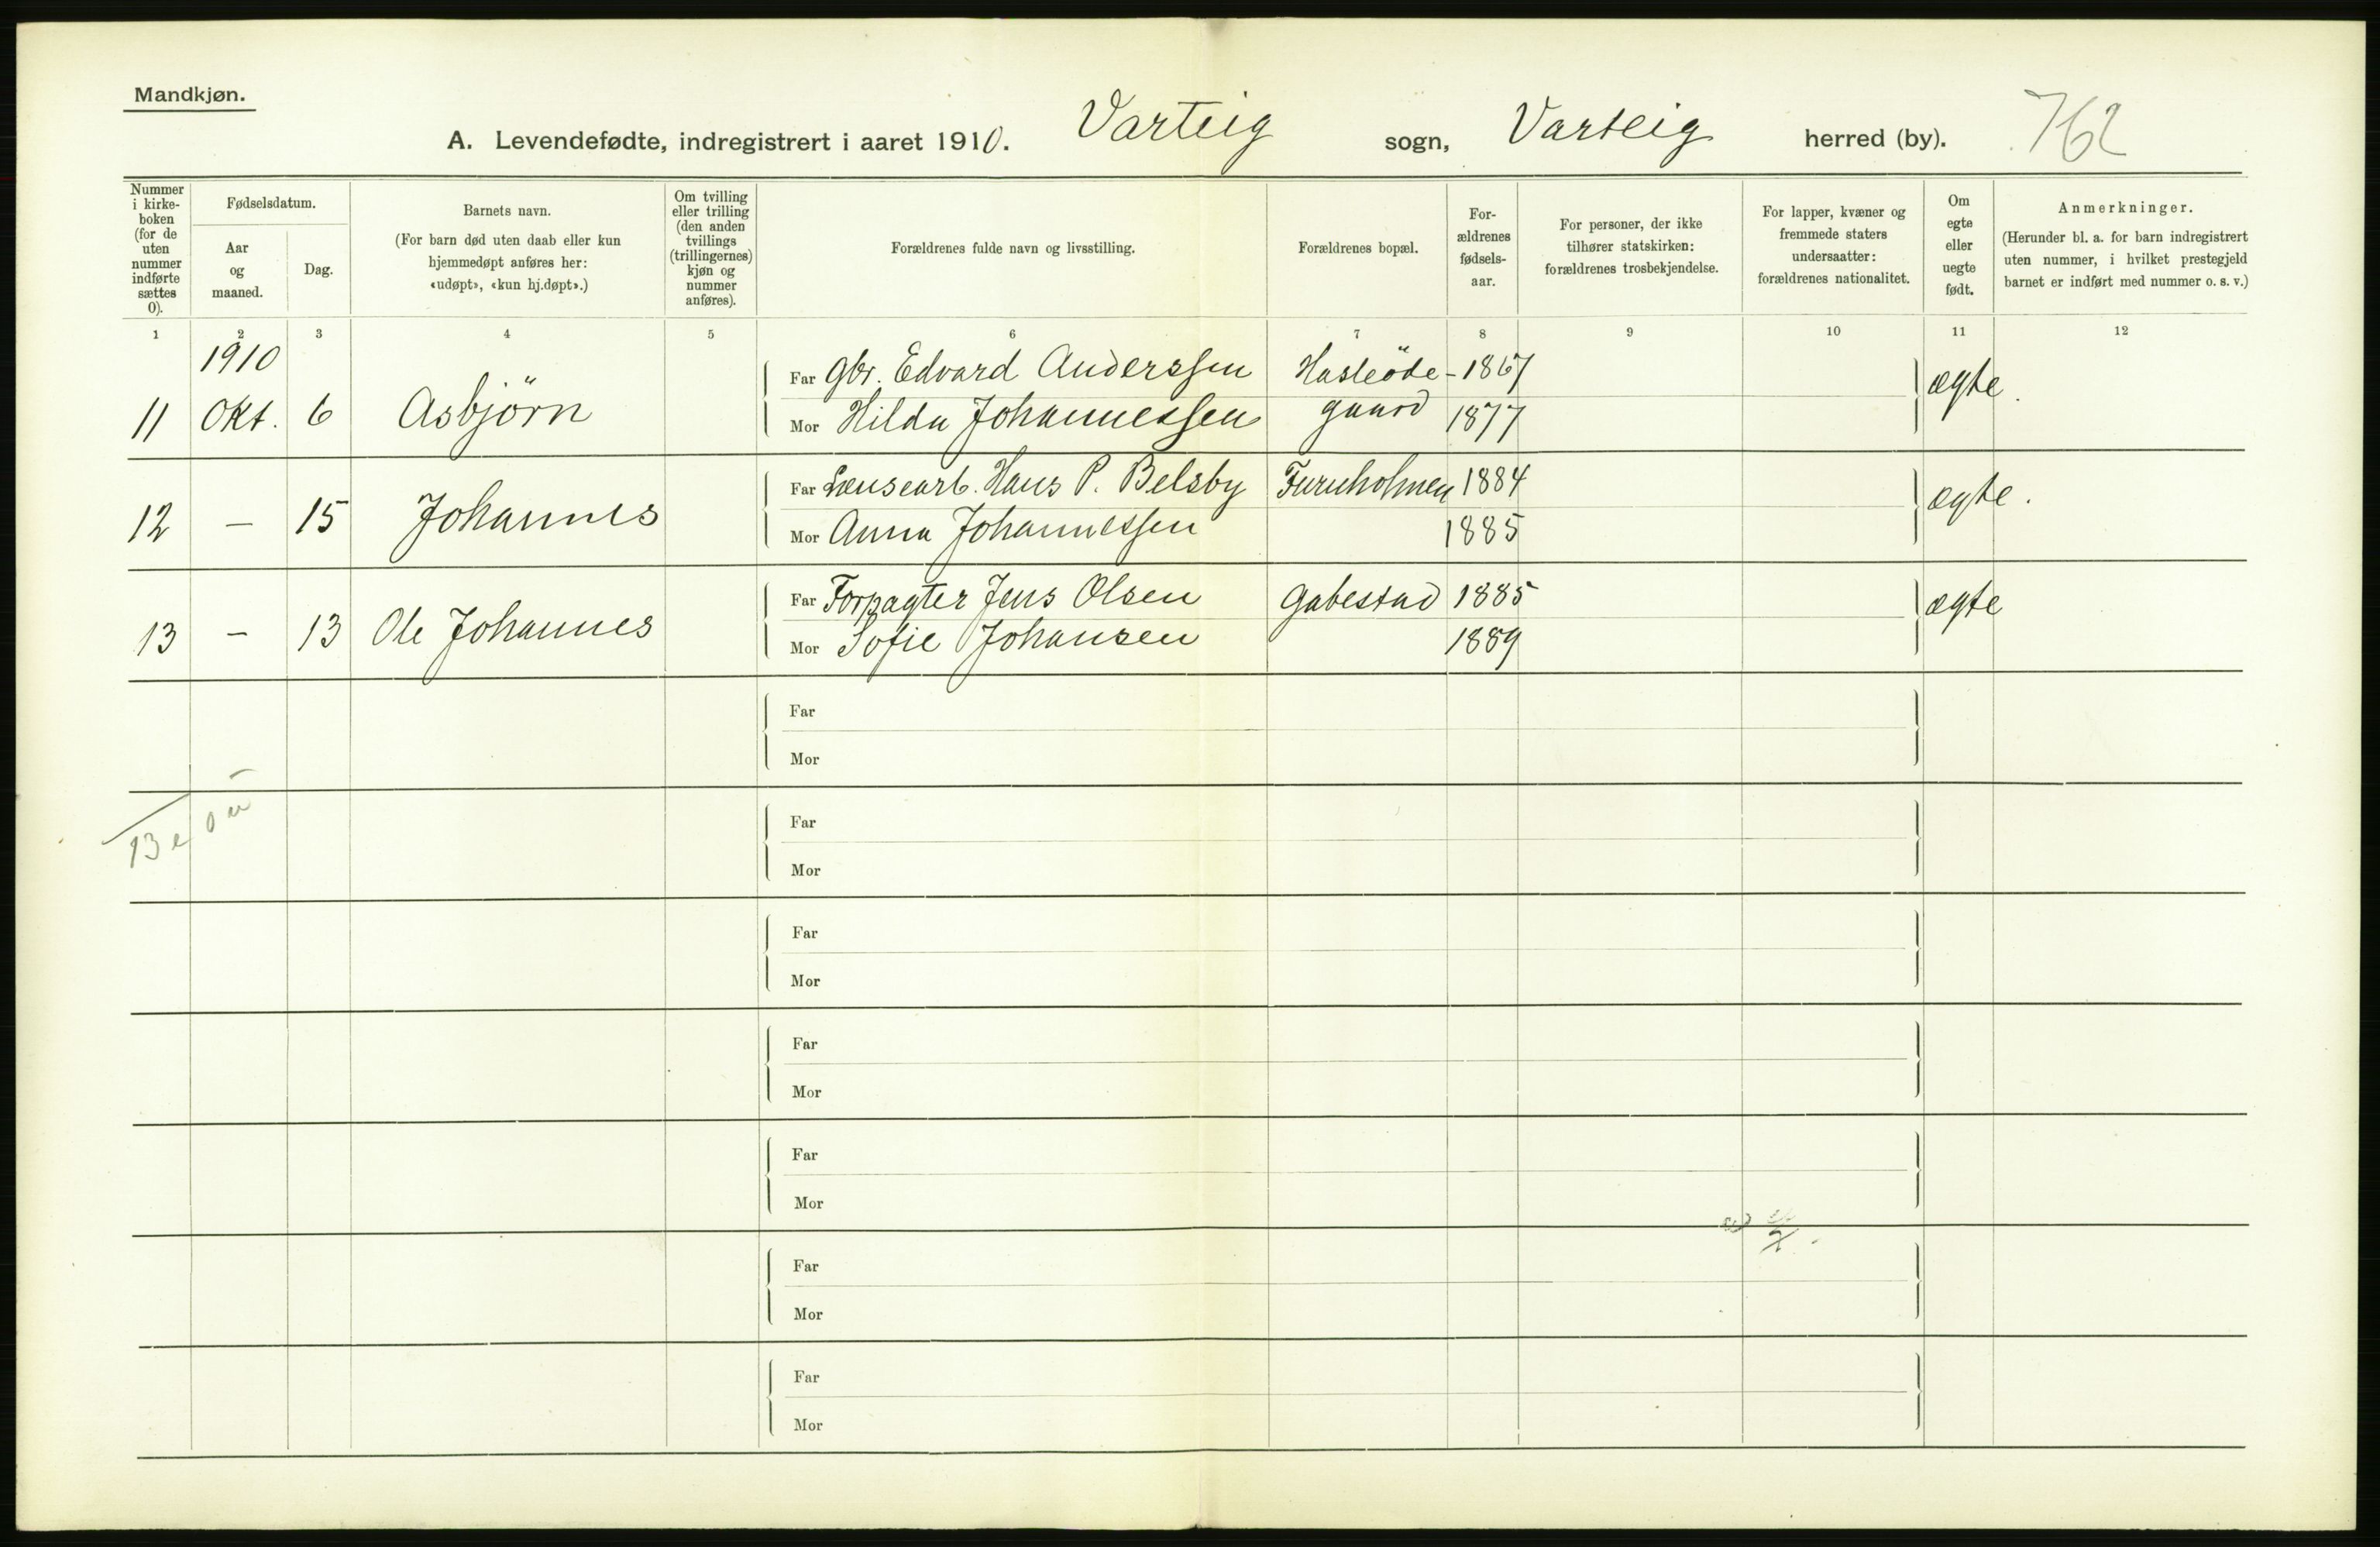 Mandkjøn.
A. Levendefødte, indregistrert i aaret 1910. Varteig sogn, Varteig herred (by). 762
Nummer i kirkeboken (for de uten nummer indførte sættes 0).
Fødselsdatum.
Aar og maaned.
Dag.
Barnets navn.
(For barn død uten daab eller kun hjemmedøpt anføres her: «udøpt», «kun hj.døpt».)
Om tvilling eller trilling (den anden tvillings (trillingernes) kjøn og nummer anføres).
Forældrenes fulde navn og livsstilling.
Forældrenes bopæl.
Forældrenes fødselsaar.
For personer, der ikke tilhører statskirken: forældrenes trosbekjendelse.
For lapper, kvæner og fremmede staters undersaatter: forældrenes nationalitet.
Om egte eller uegte født.
Anmerkninger.
(Herunder bl. a. for barn indregistrert uten nummer, i hvilket prestegjeld barnet er indført med nummer o. s. v.)
1 2 3 4 5 6 7 8 9 10 11 12
1910 Far Gbr. Edvard Anderssen Hasleöde- 1867 ægte.
11 Okt. 6 Asbjörn Mor Hilda Johannessen gaard 1877
Far Lensearb. Hans P. Belsby Furuholmen 1884 ægte.
12 — 15 Johannes Mor Anna Johannessen 1885
Far Forpagter Jens Olsen Gabestad 1885 ægte
13 — 13 Ole Johannes Mor Sofie Johansen 1889
Far
Mor
13 e 0 u
Far
Mor
Far
Mor
Far
Mor
Far
Mor
Far
Mor
Far
Mor